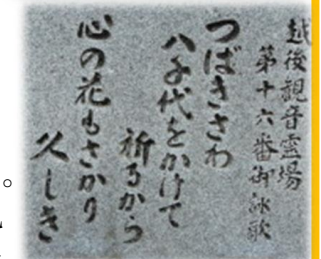 越後観音霊場
第十六番御詠歌
つばきさわ
八千代をかけて
祈るから
心の花もさかり
久しき
。